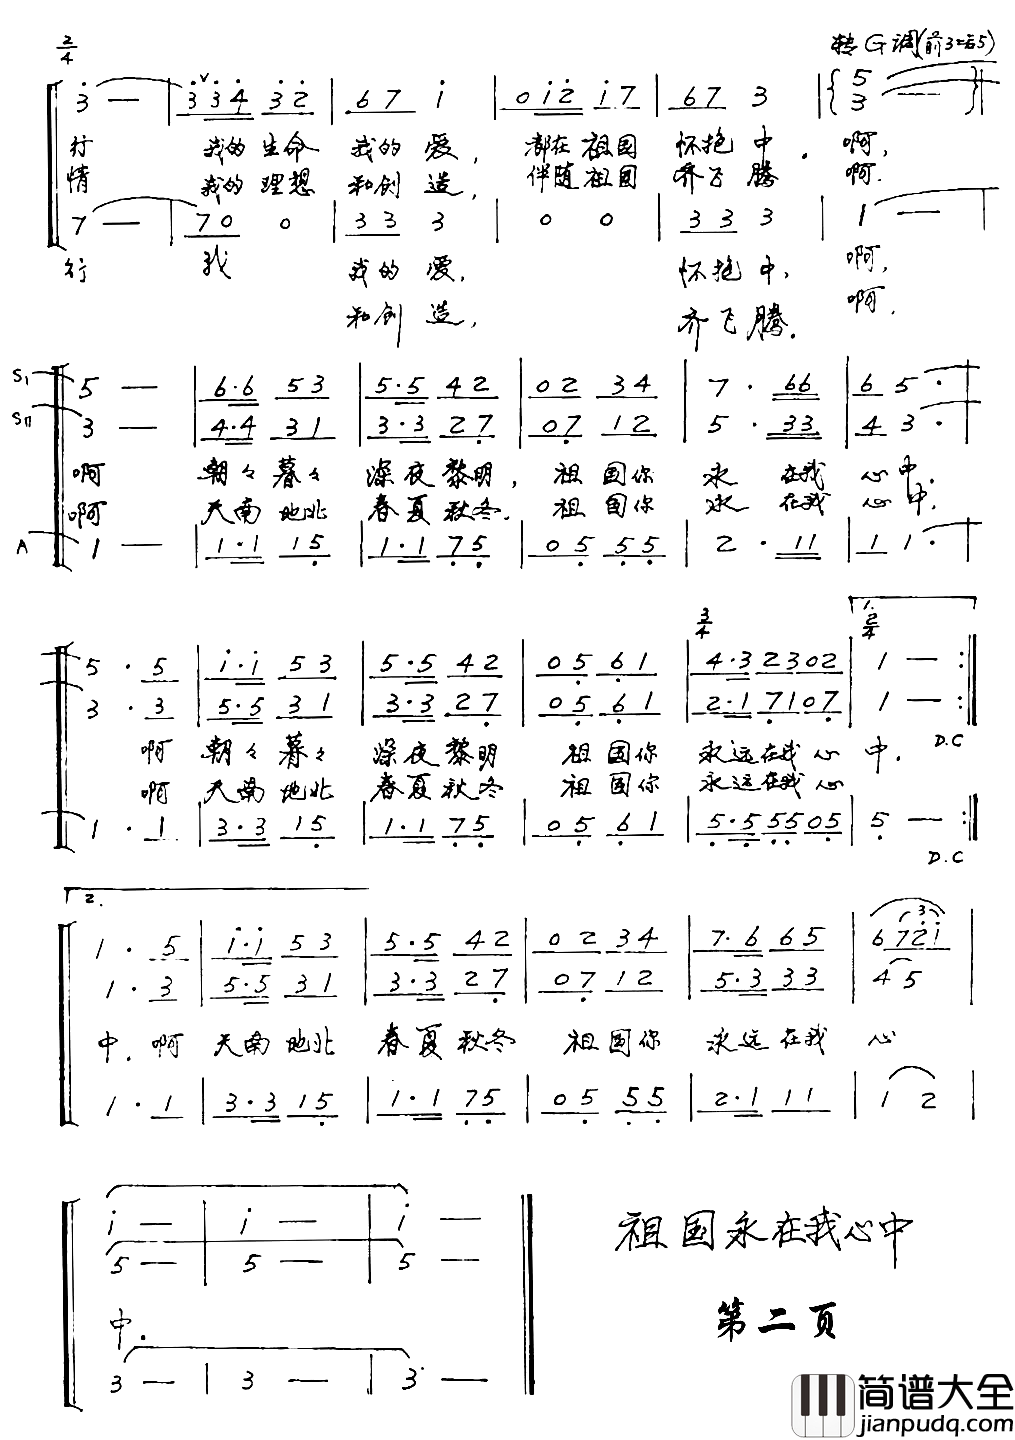 2/4 转G调(前3=后5)
3 — | 3 3 4 3 2 | 6 7 1 | 0 1 2 1 7 | 6 7 3 | { 5 3 — }
行 我的生命 我的爱, 都在祖国 怀抱中. 啊,
情 我的理想 和创造, 伴随祖国 齐飞腾 啊.
7 — | 7 0 0 | 3 3 3 | 0 0 | 3 3 3 | 1 — |
行 我 我的爱, 怀抱中, 啊,
和创造, 齐飞腾. 啊.
SⅠ 5 — | 6·6 5 3 | 5·5 4 2 | 0 2 3 4 | 7· 6 6 | 6 5·
SⅡ 3 — | 4·4 3 1 | 3·3 2 7 | 0 7 1 2 | 5· 3 3 | 4 3·
啊 朝々暮々 深夜黎明, 祖国你 永在我心中.
啊 天南地北 春夏秋冬. 祖国你 永在我心中.
A 1 — | 1·1 1 5 | 1·1 7 5 | 0 5 5 5 | 2· 1 1 | 1 1·
3/4 1. 2/4
5· 5 | 1·1 5 3 | 5·5 4 2 | 0 5 6 1 | 4·3 2 3 0 2 | 1 — :‖
3· 3 | 5·5 3 1 | 3·3 2 7 | 0 5 6 1 | 2·1 7 1 0 7 | 1 — :‖
D.C
啊 朝々暮々 深夜黎明 祖国你 永远在我心中.
啊 天南地北 春夏秋冬 祖国你 永远在我心
1· 1 | 3·3 1 5 | 1·1 7 5 | 0 5 6 1 | 5·5 5 5 0 5 | 5 — :‖
D.C
2.
1· 5 | 1·1 5 3 | 5·5 4 2 | 0 2 3 4 | 7·6 6 5 | 6 7 2 1
3
1· 3 | 5·5 3 1 | 3·3 2 7 | 0 7 1 2 | 5·3 3 3 | 4 5
中. 啊 天南地北 春夏秋冬 祖国你 永远在我 心
1· 1 | 3·3 1 5 | 1·1 7 5 | 0 5 5 5 | 2·1 1 1 | 1 2 |
1 — | 1 — | 1 — ‖
5 — | 5 — | 5 — ‖
中.
3 — | 3 — | 3 — ‖
祖国永在我心中
第二页
简谱大全
jianpudq.com